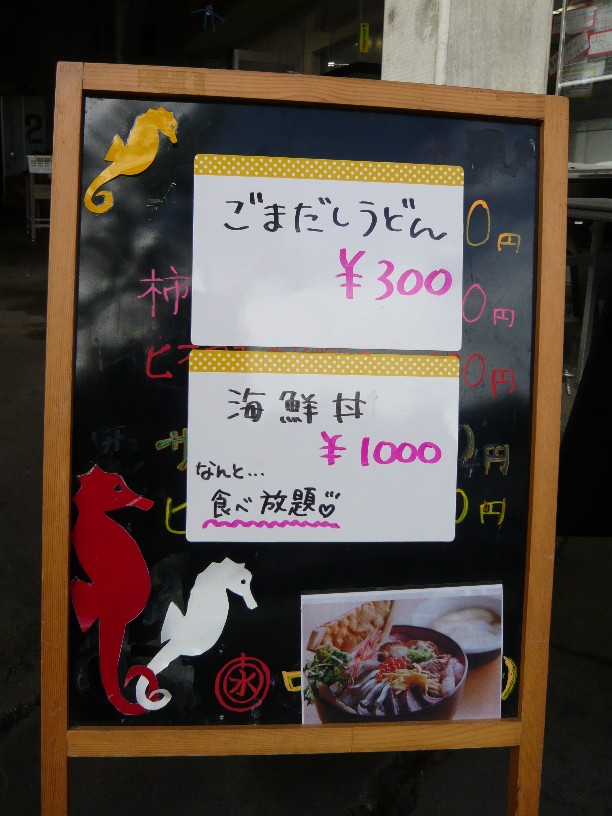 ごまだしうどん
¥300
0円
柿
0円
ヒ
0円
海鮮丼
¥1000
なんと…
食べ放題♡
サ
円
ヒ
0円
永